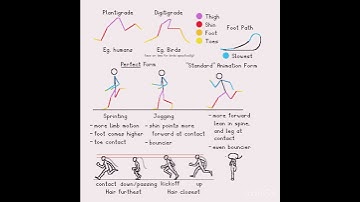 Plantigrade
Digitigrade
Thigh
Shin
Foot
Toes
Foot Path
Slowest
Eg. humans
Eg. Birds
Perfect Form
"Standard" Animation Form
Sprinting
- more limb motion
- foot comes higher
- toe contact
Jogging
- shin points more
forward at contact
- bouncier
- more forward
lean in spine,
and leg at
contact
- even bouncier
contact down/passing kickoff up
Hair furthest
Hair closest